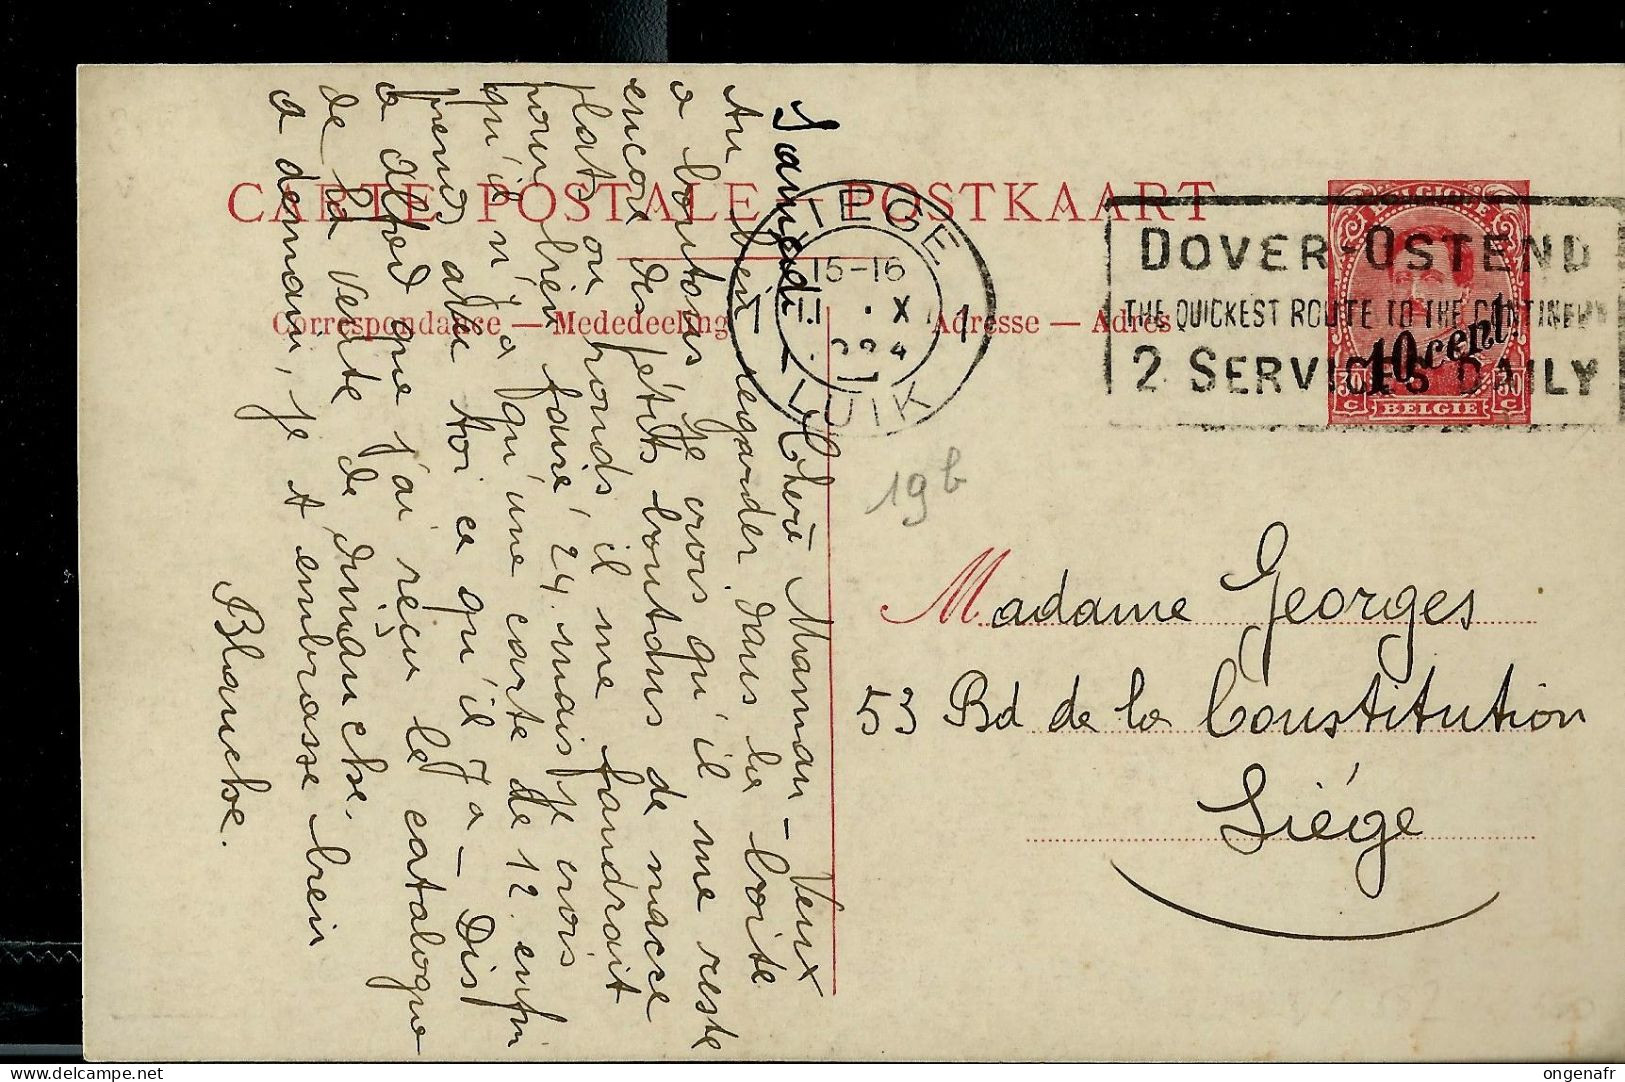 CARTE POSTALE — POSTKAART
Correspondance — Mededeeling
Adresse — Adres
LIEGE
1 15-16 1
11 . X
LUIK
DOVER-OSTEND
THE QUICKEST ROUTE TO THE CONTINENT
2 SERVICES DAILY
BELGIQUE
10 cent.
30 C BELGIE 30 C
19b
Madame Georges
53 Bd de la Constitution
Liége
Samedi — Chère Maman — Veux
tu bien regarder dans la boite
a boutons je crois qu'il me reste
encore des petits boutons de nacre
plats ou ronds, il me faudrait
pour bien faire 24. mais je crois
qu'il n'y a qu'une carte de 12. enfin
prends avec toi ce qu'il y a — Dis
a Alfred que j'ai reçu le catalogue
de la vente de Dimanche.
a demain, je t'embrasse bien
Blanche.
ongenafr